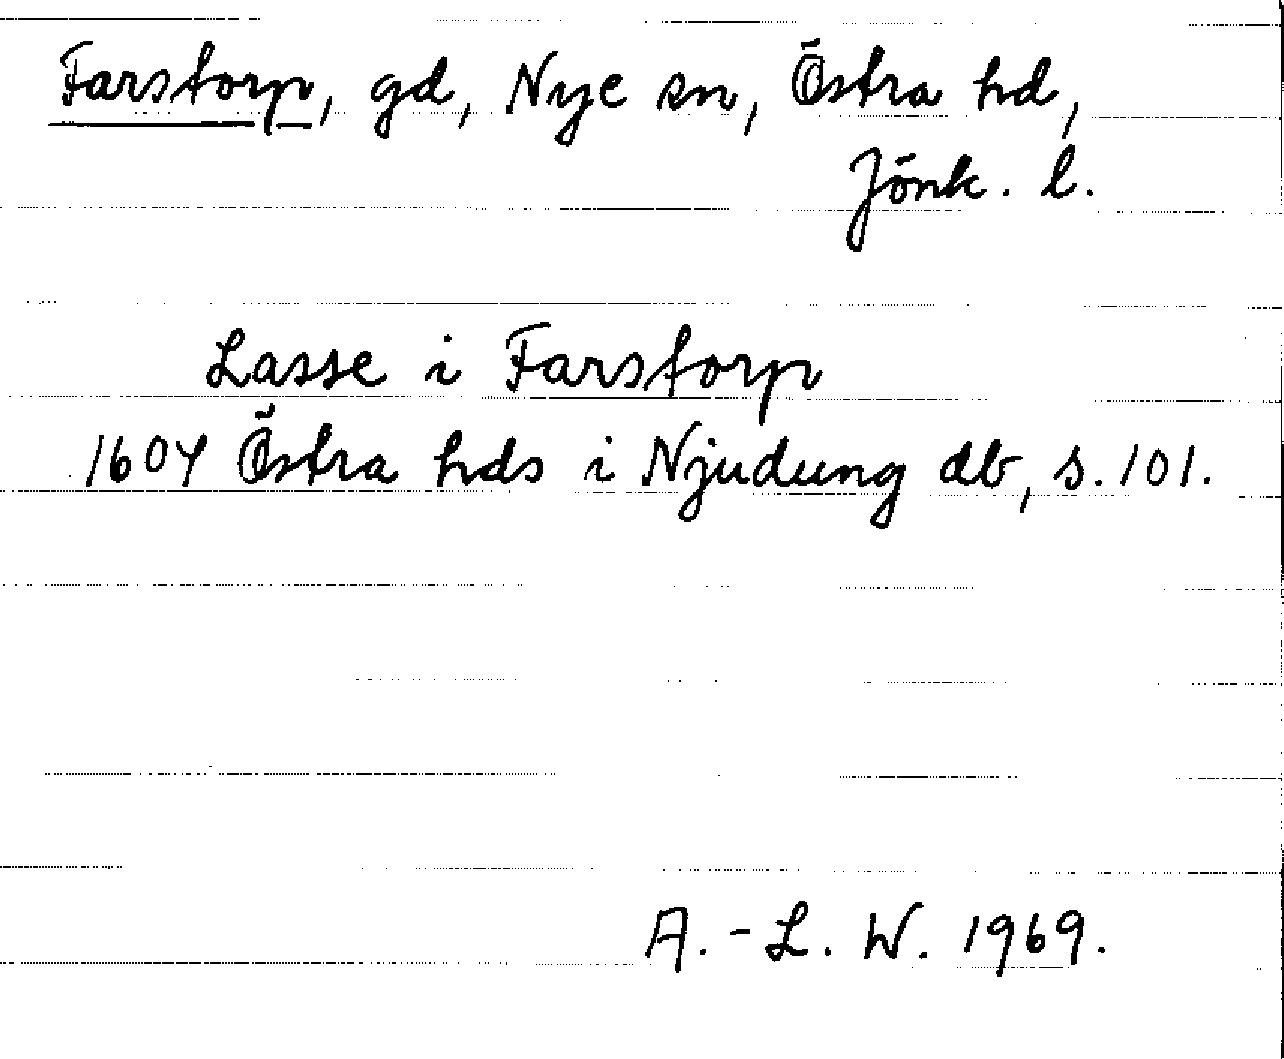 Farstorp, gd, Nye sn, Östra hd,
Jönk. l.
Lasse i Farstorp
1604 Östra hds i Njudung db, s. 101.
A.-L. W. 1969.